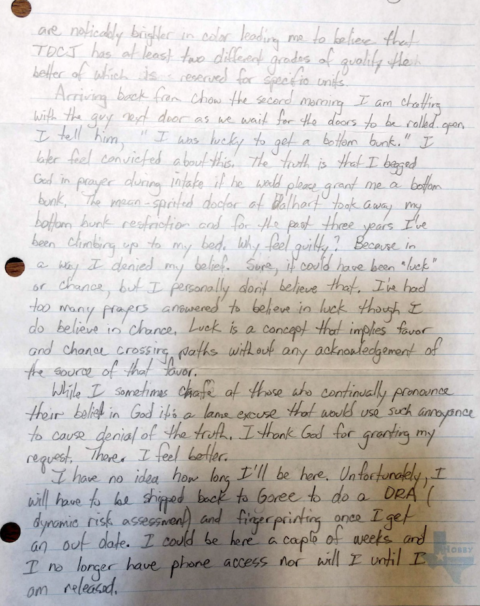 are noticably brighter in color leading me to believe that
TDCJ has at least two different grades of quality the
better of which is reserved for specific units.
Arriving back from chow the second morning I am chatting
with the guy next door as we wait for the doors to be rolled open
I tell him, "I was lucky to get a bottom bunk." I
later feel convicted about this. The truth is that I begged
God in prayer during intake if he would please grant me a bottom
bunk. The mean-spirited doctor at Dalhart took away my
bottom bunk restriction and for the past three years I've
been climbing up to my bed. Why feel guilty? Because in
a way I denied my belief. Sure, it could have been "luck"
or chance, but I personally don't believe that. I've had
too many prayers answered to believe in luck though I
do believe in chance. Luck is a concept that implies favor
and chance crossing paths without any acknowledgement of
the source of that favor.
While I sometimes chafe at those who continually pronounce
their belief in God it's a lame excuse that would use such annoyance
to cause denial of the truth. I thank God for granting my
request. There. I feel better.
I have no idea how long I'll be here. Unfortunately, I
will have to be shipped back to Goree to do a DRA (
dynamic risk assessment) and fingerprinting once I get
an out date. I could be here a couple of weeks and
I no longer have phone access nor will I until I
am released.